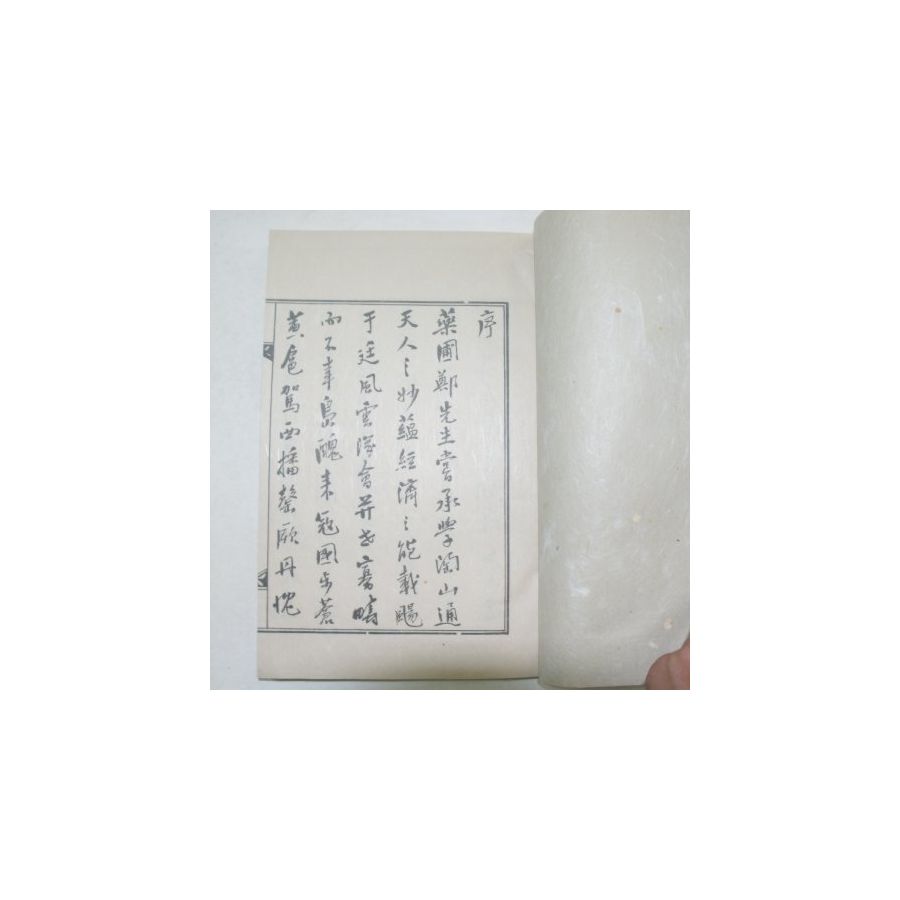 序
藥圃鄭先生嘗承學陶山通
天人之妙蘊經濟之能載颺
于廷風雲際會并世寡疇
而不幸島醜來寇國步蒼
黃扈駕西播罄厥丹忱